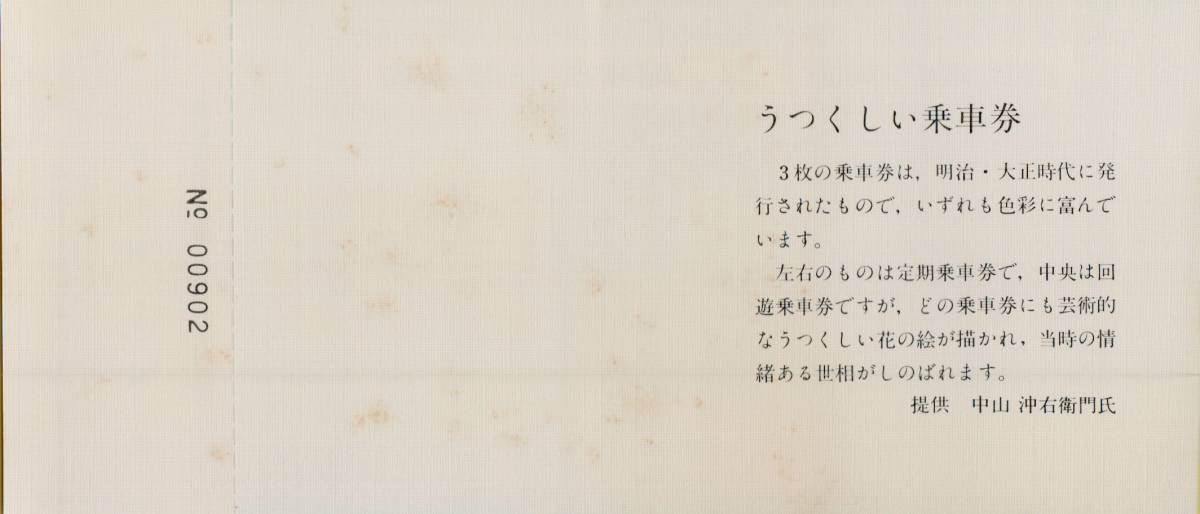 No 00902
うつくしい乗車券
3枚の乗車券は，明治・大正時代に発
行されたもので，いずれも色彩に富んで
います。
左右のものは定期乗車券で，中央は回
遊乗車券ですが，どの乗車券にも芸術的
なうつくしい花の絵が描かれ，当時の情
緒ある世相がしのばれます。
提供　中山 沖右衛門氏